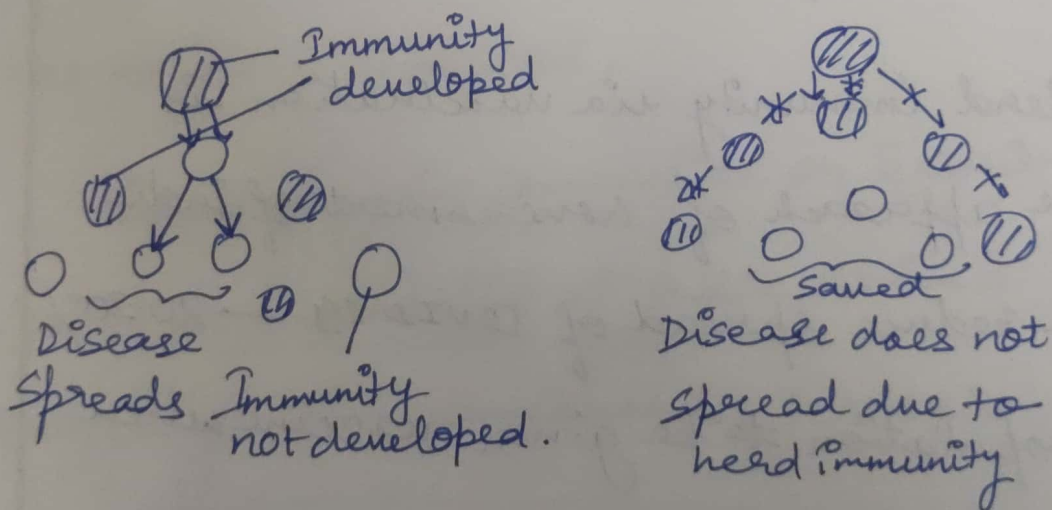 Immunity
developed
Disease
Spreads
Immunity
not developed.
Saved
Disease does not
spread due to
herd immunity